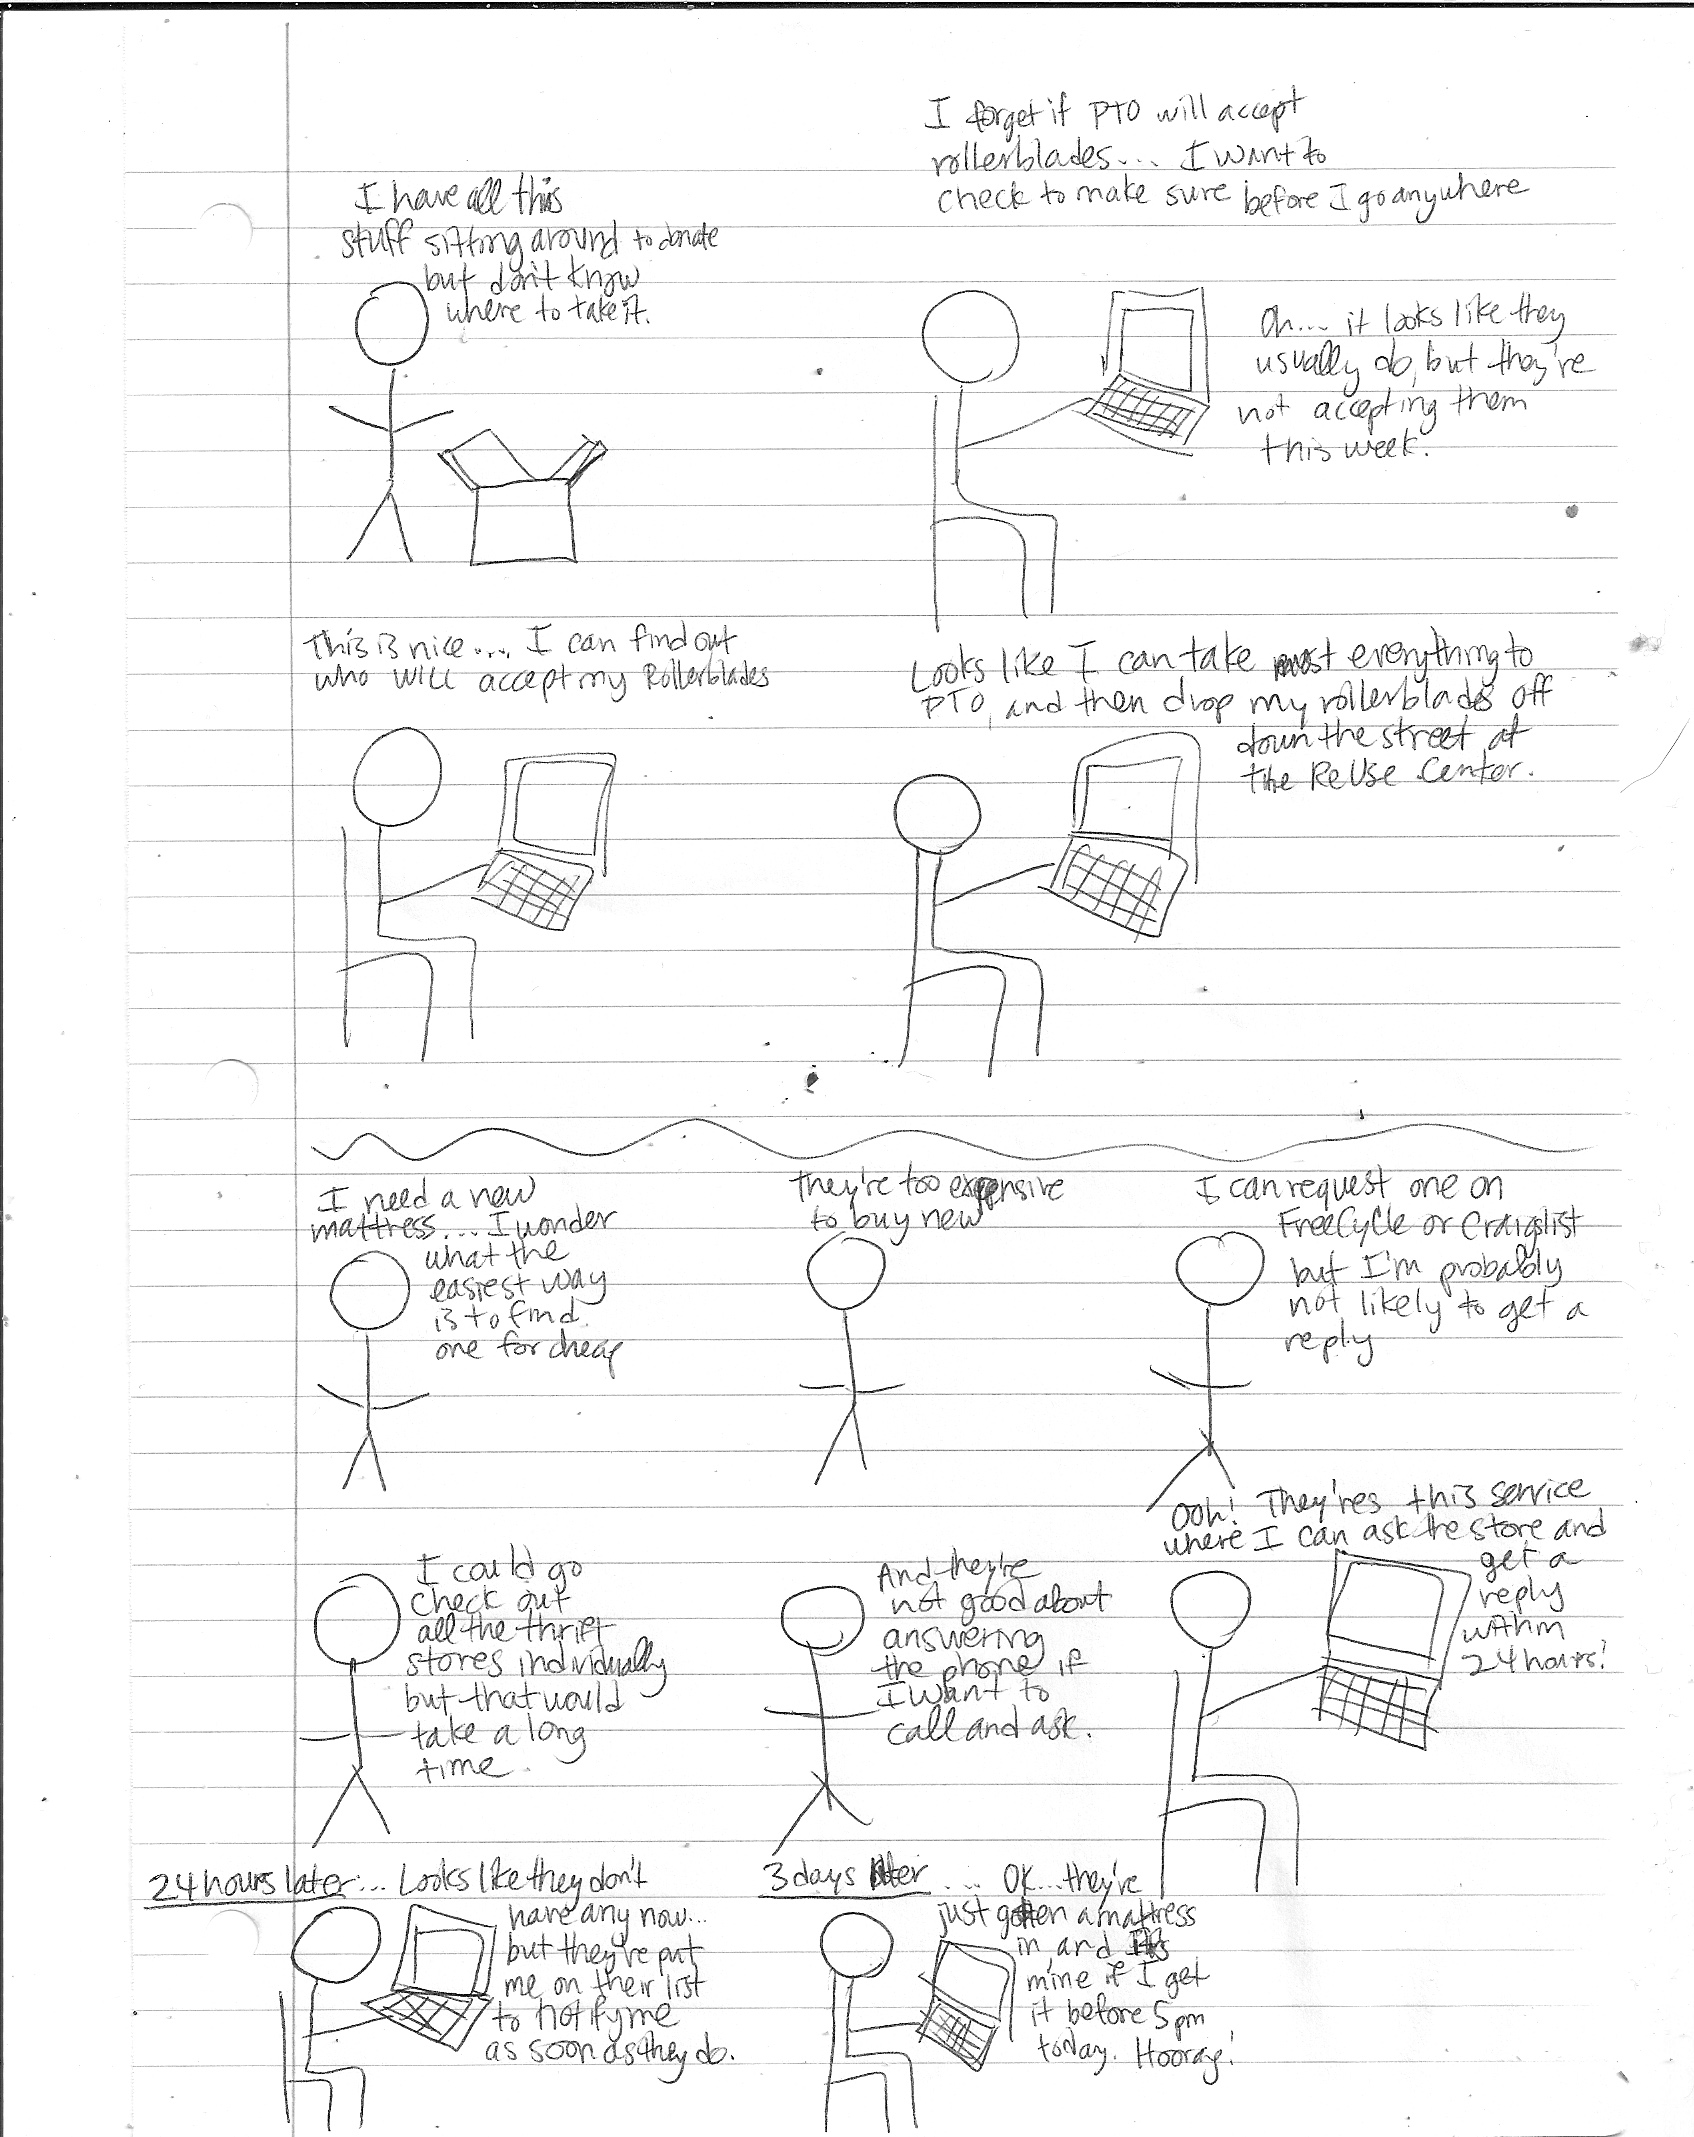 I have all this
stuff sitting around to donate
but don't know
where to take it.
I forget if PTO will accept
rollerblades.... I want to
check to make sure before I go anywhere
Oh.... it looks like they
usually do, but they're
not accepting them
this week.
This is nice.... I can find out
who will accept my Rollerblades
Looks like I can take most everything to
PTO, and then drop my rollerblades off
down the street at
the ReUse Center.
I need a new
mattress.... I wonder
what the
easiest way
is to find
one for cheap
They're too expensive
to buy new
I can request one on
FreeCycle or Craigslist
but I'm probably
not likely to get a
reply
I could go
check out
all the thrift
stores individually
but that would
take a long
time.
And they're
not good about
answering
the phone if
I want to
call and ask.
Ooh! They'res this service
where I can ask the store and
get a
reply
within
24 hours!
24 hours later... Looks like they don't
have any now...
but they've put
me on their list
to notify me
as soon as they do.
3 days later .... OK...they've
just gotten a mattress
in, and it's
mine if I get
it before 5pm
today. Hooray!